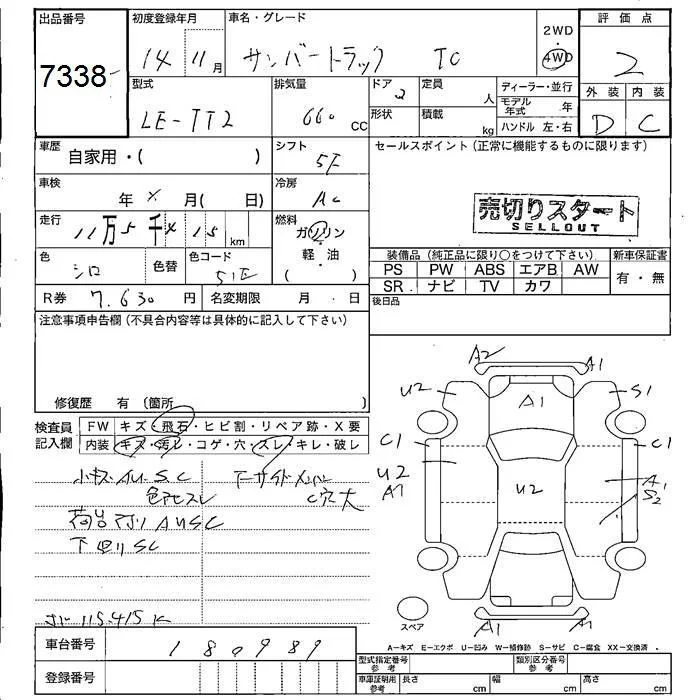 出品番号 7338
初度登録年月 14 11月
車名・グレード サンバートラック TC
2WD
4WD
評価点 2
外装 内装
D C
型式 LE-TT2
排気量 660 CC
ドア 2
形状
定員 人
積載 kg
ディーラー・並行
モデル年式 年
ハンドル 左・右
車歴 自家用・( )
シフト 5F
セールスポイント(正常に機能するものに限ります)
車検 年 X 月( 日)
冷房 AC
売切りスタート
SELLOUT
走行 11万5千415 km
燃料 ガソリン・軽・油 ( )
色 シロ 色替
色コード 51E
装備品(純正品に限り○をつけて下さい)
PS PW ABS エアB AW
SR ナビ TV カワ
新車保証書
有・無
R券 7,630円
名変期限 月・日
後日品
注意事項申告欄(不具合内容等は具体的に記入して下さい)
修復歴 有(箇所 )
検査員記入欄
FW キズ・飛石・ヒビ割・リペア跡・X要
内装 キズ・汚レ・コゲ・穴・スレ・キレ・破レ
小キズ AU.S.C
色アセスレ
下サイドメンバー
C穴大
荷台 AUSC
下回りSC
115.415K
A2 A1
U2 A1 S1
C1 C1
U2 A1 U2 A1 S2
A1 A1
スペア
A-キズ E-エクボ U-凹み W-補修跡 S-サビ C-腐食 XX-交換済
車台番号 180989
登録番号
型式指定番号 参考
類別区分番号 参考
車庫証明用 参考 長さ cm 幅 cm 高さ cm